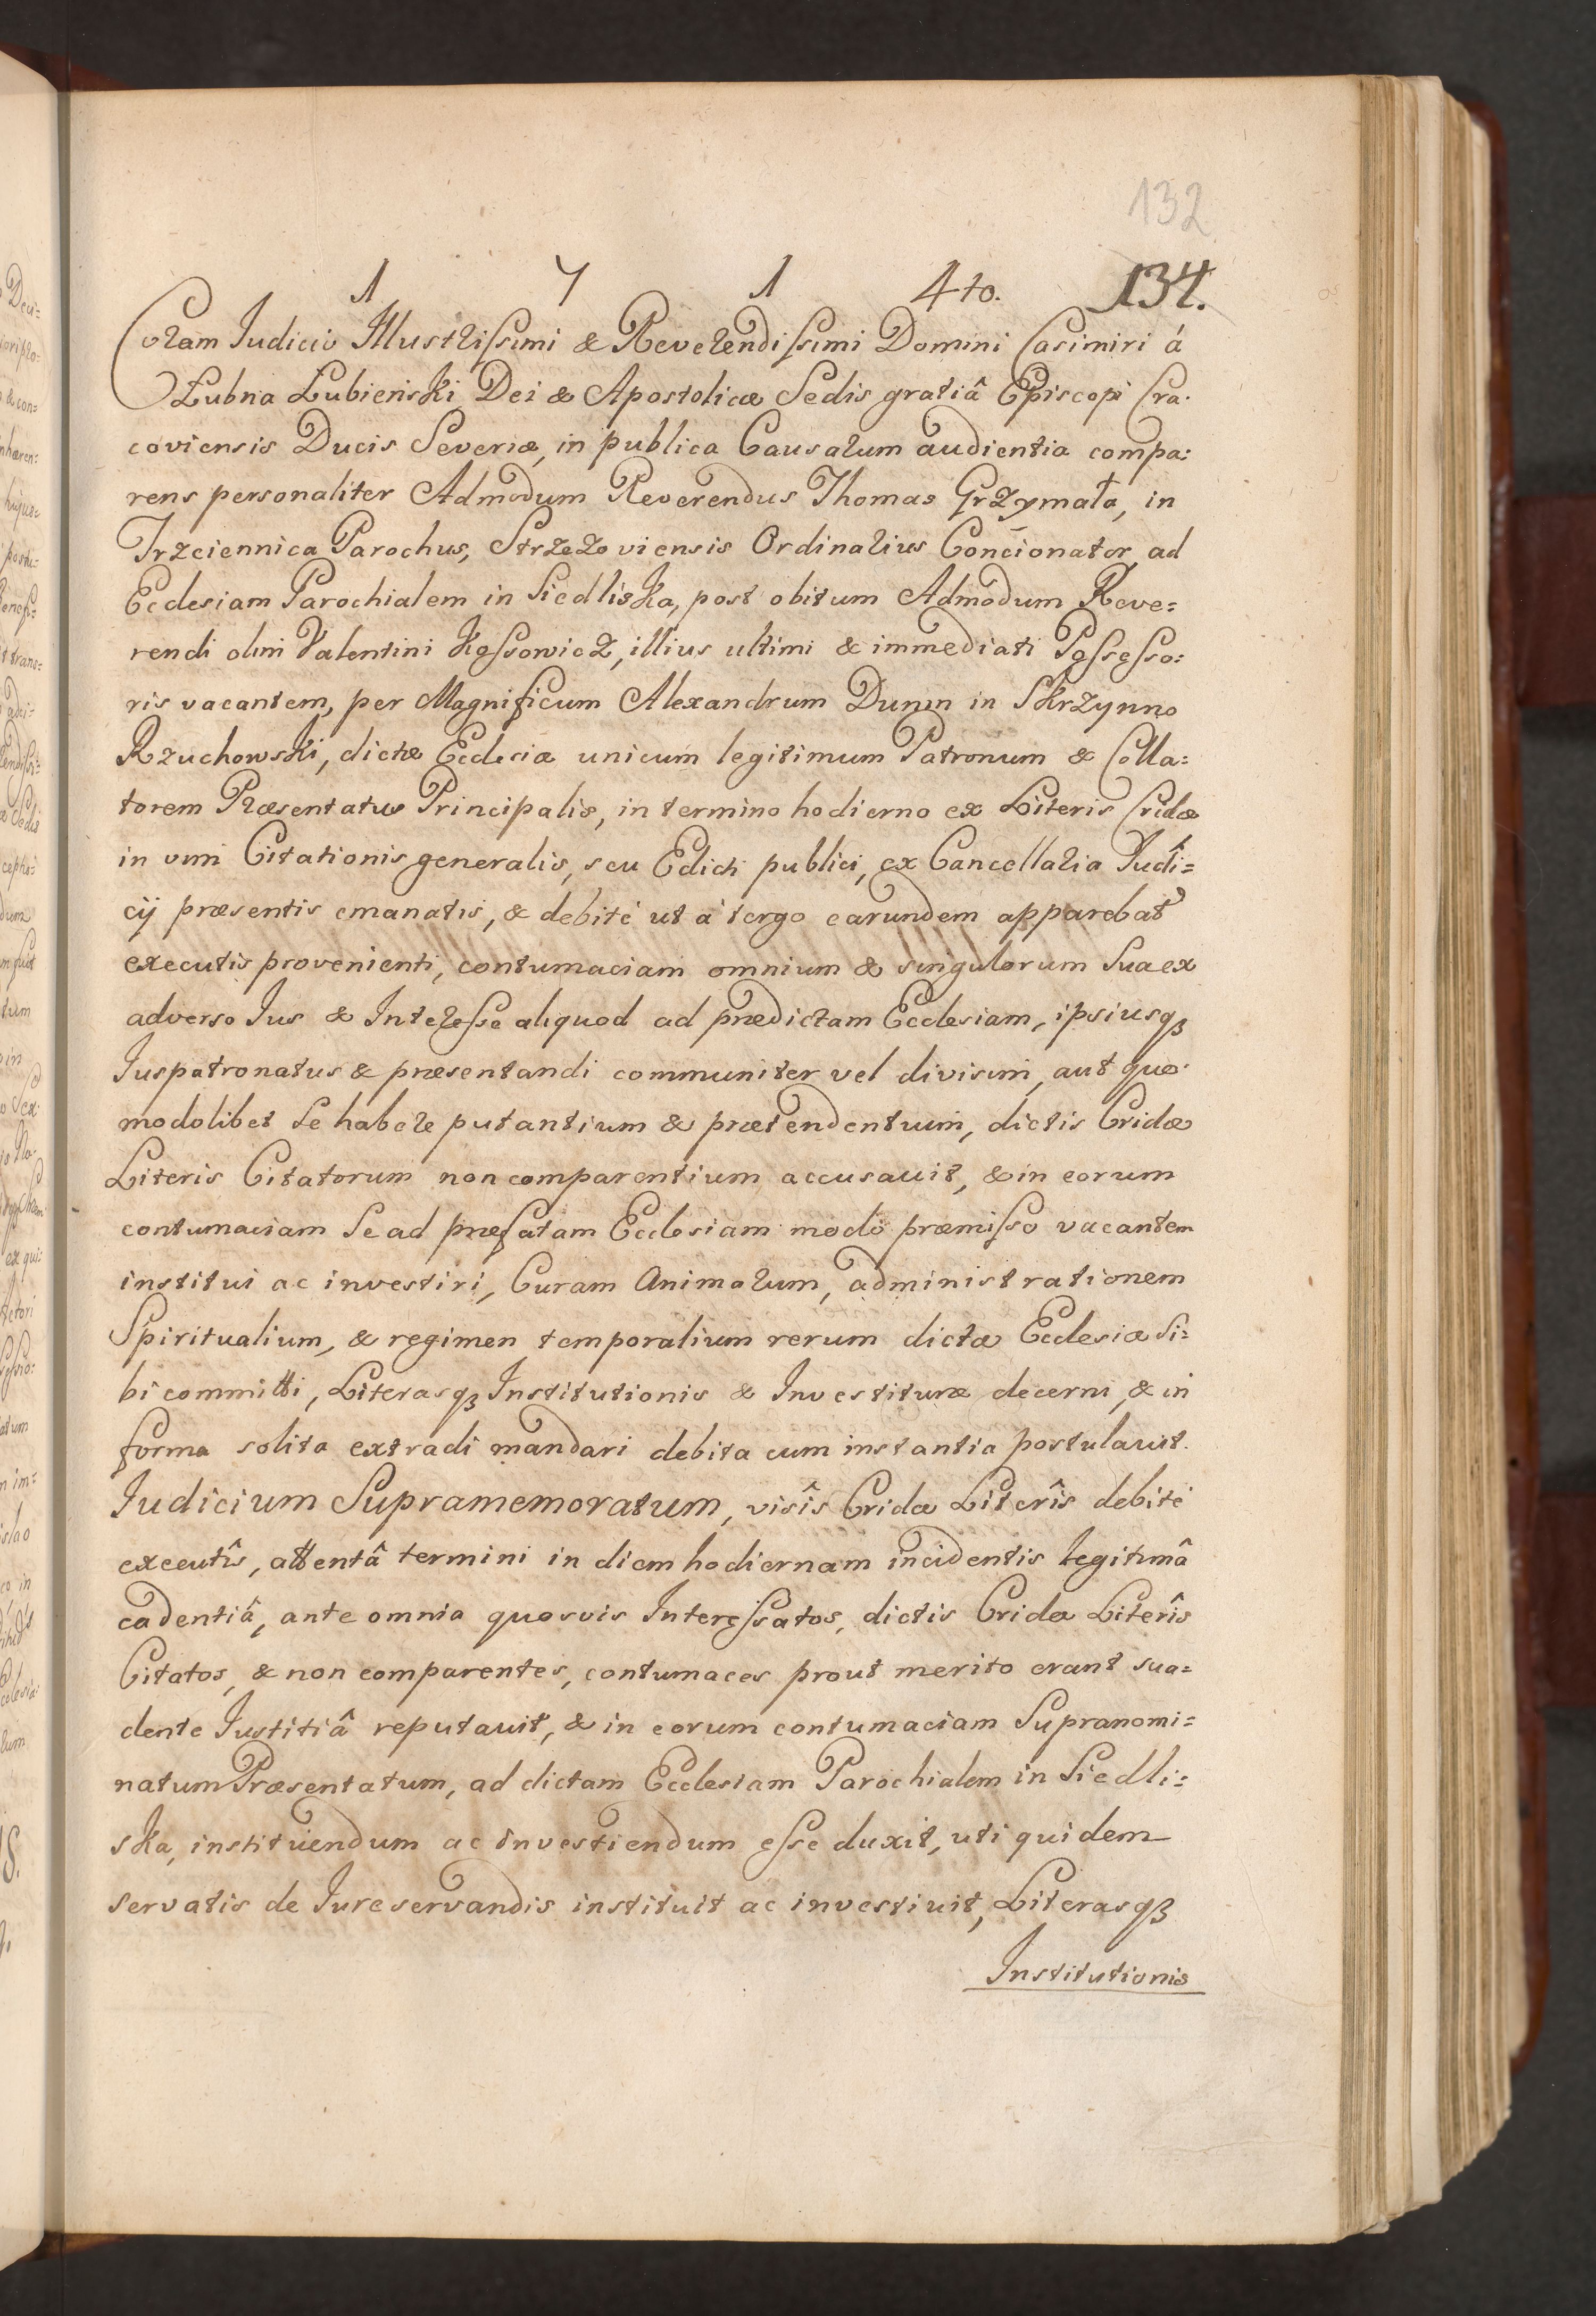 132
1 7 1 4to. 134.
Coram Iudicio Illustrissimi & Reverendissimi Domini Casimiri á
Łubna Łubieński Dei & Apostolicæ Sedis gratiâ Episcopi Cra:
coviensis Ducis Severiæ, in publica Causarum audientia compa:
rens personaliter Admodum Reverendus Thomas Grzymała, in
Trzciennica Parochus, Strzezoviensis Ordinarius Concionator, ad
Ecclesiam Parochialem in Siedliska, post obitum Admodum Reve=
rendi olim Valentini Kossowicz, illius ultimi & immediati Possesso:
ris vacantem, per Magnificum Alexandrum Dunin in Skrzynno
Rzuchowski, dictæ Ecclesiæ unicum legitimum Patronum & Colla:
torem Præsentatus Principalis, in termino hodierno ex Literis Cridæ
in vim Citationis generalis, seu Edicti publici, ex Cancellaria Iudi=
cij præsentis emanatis, & debité ut á tergo earundem apparebat
executis provenienti, contumaciam omnium & singulorum sua ex
adverso Ius & Interesse aliquod ad prædictam Ecclesiam, ipsiusqȝ
Iuspatronatus & præsentandi communiter vel divisim, aut quo
modolibet se habere putantium & prætendentium, dictis Cridæ
Literis Citatorum non comparentium accusavit, & in eorum
contumaciam se ad præfatam Ecclesiam modo præmisso vacantem
institui ac investiri, Curam Animarum, administrationem
Spiritualium, & regimen temporalium rerum dictæ Ecclesiæ Si=
bi committi, Literasqȝ Institutionis & Investituræ decerni, & in
forma solita extradi mandari debita cum instantia postulavit.
Iudicium Supramemoratum, visîs Cridæ Literîs debité
executîs, attentâ termini in diem hodiernam incidentis legitimâ
cadentiâ, ante omnia quosvis Interessatos, dictis Cridæ Literîs
Citatos, & non comparentes, contumaces prout merito erant sua=
dente Iustitiâ reputavit, & in eorum contumaciam Supranomi=
natum Præsentatum, ad dictam Ecclesiam Parochialem in Siedli=
ska, instituendum ac investiendum esse duxit, uti quidem
servatis de Iure servandis instituit ac investivit, Literasqȝ
Institutionis